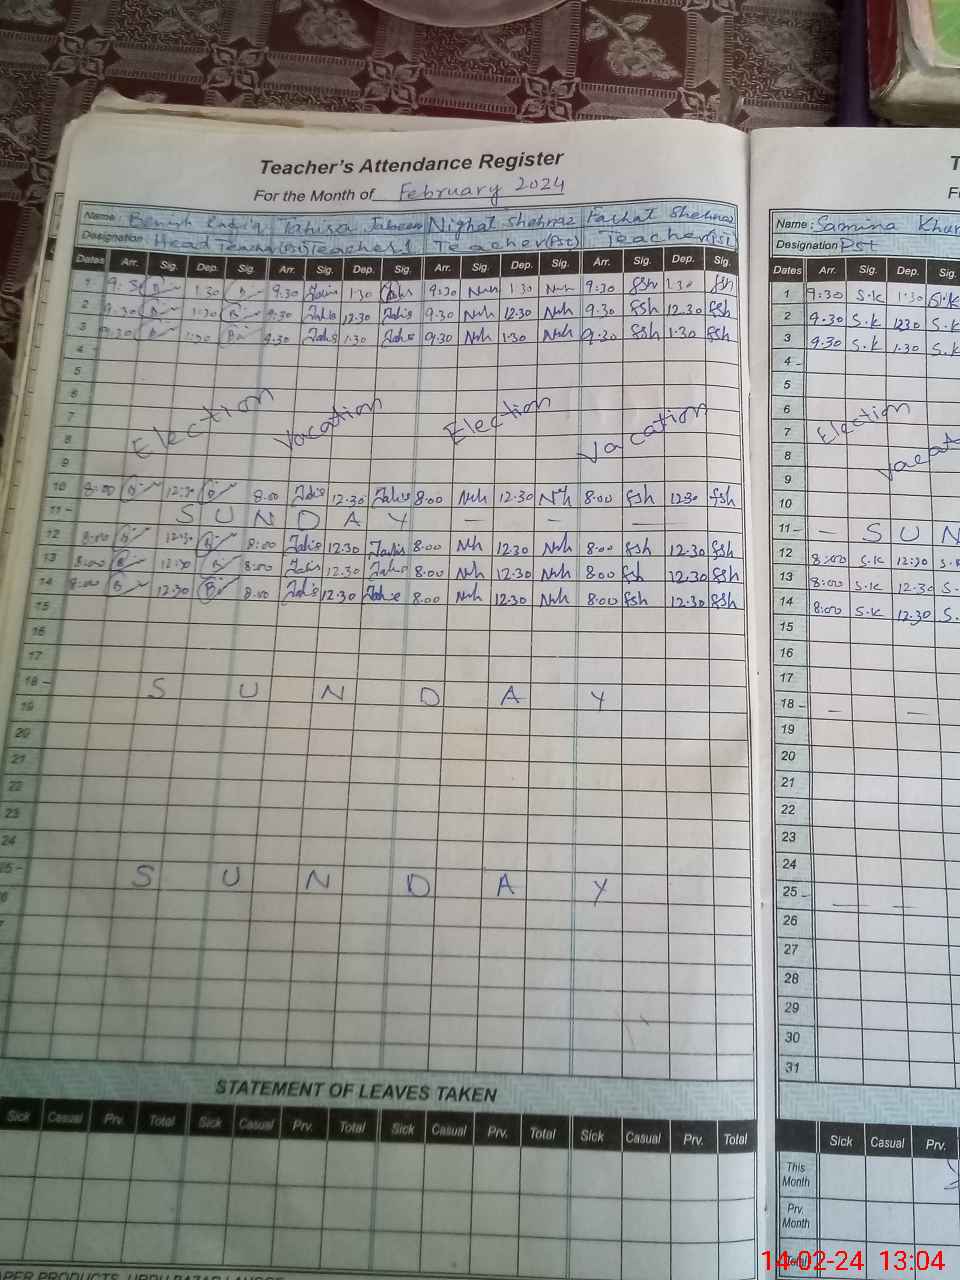 Teacher's Attendance Register
For the Month of February 2024
Name: Tahira Jabeen Nighat Shehnaz Farhat Shehnaz
Designation: Head Teacher Teacher Teacher(Pst) Teacher
Dates Arr. Sig. Dep. Sig. Arr. Sig. Dep. Sig. Arr. Sig. Dep. Sig. Arr. Sig. Dep. Sig.
1 1.30 9.30 1.30 9.30 Nuh 1.30 Nuh 9.30 fsh 1.30 fsh
2 9.30 1.30 9.30 12.30 9.30 Nuh 12.30 Nuh 9.30 fsh 12.30 fsh
3 9.30 1.30 9.30 1.30 9.30 Nuh 1.30 Nuh 9.30 fsh 1.30 fsh
4 -
5
6
7
8
Election Vacation Election Vacation
9
10 8:00 12.30 8.00 12.30 8.00 Nuh 12.30 Nuh 8.00 fsh 12.30 fsh
11 - S U N D A Y - - -
12 8:00 12.30 8:00 12.30 8.00 Nuh 12.30 Nuh 8.00 fsh 12.30 fsh
13 8:00 12.30 8:00 12.30 8.00 Nuh 12.30 Nuh 8.00 fsh 12.30 fsh
14 8:00 12.30 8.00 12.30 8.00 Nuh 12.30 Nuh 8.00 fsh 12.30 fsh
15
16
17
18 - S U N D A Y
19
20
21
22
23
24
25 - S U N D A Y
STATEMENT OF LEAVES TAKEN
Sick Casual Prv. Total Sick Casual Prv. Total Sick Casual Prv. Total Sick Casual Prv. Total
PAPER PRODUCTS, URDU BAZAR LAHORE
Name: Samina
Designation Pst
Dates Arr. Sig. Dep. Sig.
1 9:30 S.K 1.30 S.K
2 9.30 S.K 12.30 S.K
3 9.30 S.K 1.30 S.K
4 -
5
6
7
8
Election
9
10
11 - - S U N
12 8:00 S.K 12:30 S.
13 8:00 S.K 12.30 S.
14 8:00 S.K 12.30 S.
15
16
17
18 - - -
19
20
21
22
23
24
25 - - -
26
27
28
29
30
31
Sick Casual Prv.
This Month
Prv. Month
Total
14-02-24 13:04